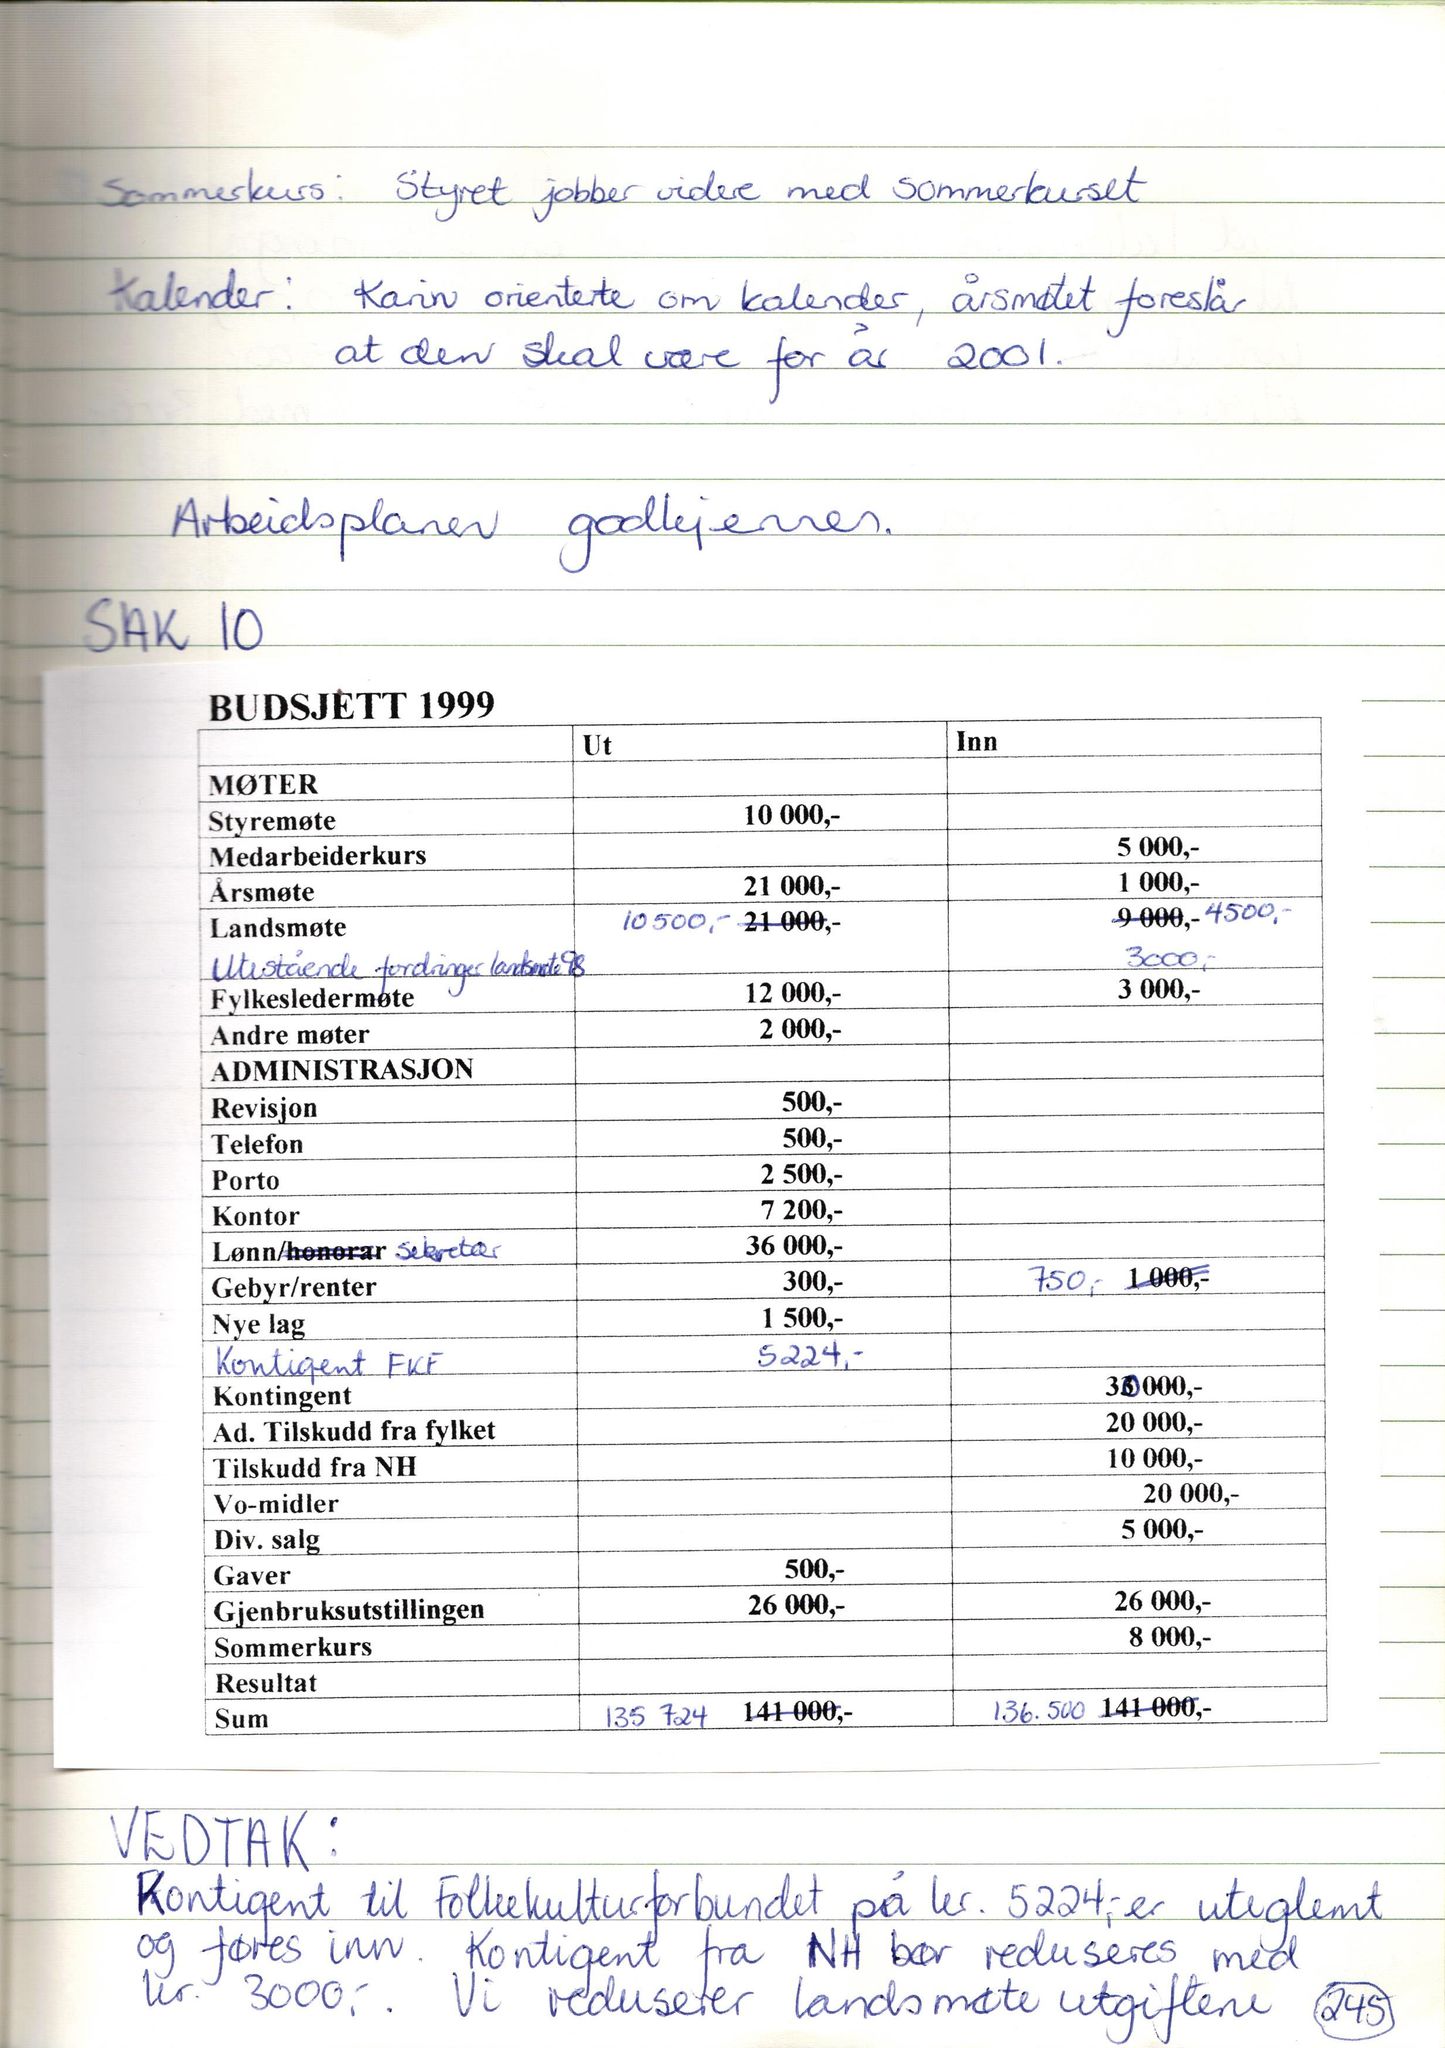 Sommerkurs: Styret jobber videre med sommerkurset
Kalender: Karin orienterte om kalender, årsmøtet foreslår
at den skal være for år 2001.
Arbeidsplanen godkjennes.
SAK 10
BUDSJETT 1999
Ut Inn
MØTER
Styremøte 10 000,-
Medarbeiderkurs 5 000,-
Årsmøte 21 000,- 1 000,-
Landsmøte 10500,- 21 000,- 9 000,- 4500,-
Utestående fordringer landsmøte 98 3000,-
Fylkesledermøte 12 000,- 3 000,-
Andre møter 2 000,-
ADMINISTRASJON
Revisjon 500,-
Telefon 500,-
Porto 2 500,-
Kontor 7 200,-
Lønn/honorar sekretær 36 000,-
Gebyr/renter 300,- 750,- 1 000,-
Nye lag 1 500,-
Kontigent FKF 5224,-
Kontingent 30 000,-
Ad. Tilskudd fra fylket 20 000,-
Tilskudd fra NH 10 000,-
Vo-midler 20 000,-
Div. salg 5 000,-
Gaver 500,-
Gjenbruksutstillingen 26 000,- 26 000,-
Sommerkurs 8 000,-
Resultat
Sum 135 724 141 000,- 136.500 141 000,-
VEDTAK:
Kontigent til Folkekulturforbundet på kr. 5224,- er uteglemt
og føres inn. Kontigent fra NH bør reduseres med
kr. 3000,-. Vi reduserer landsmøte utgiftene 245